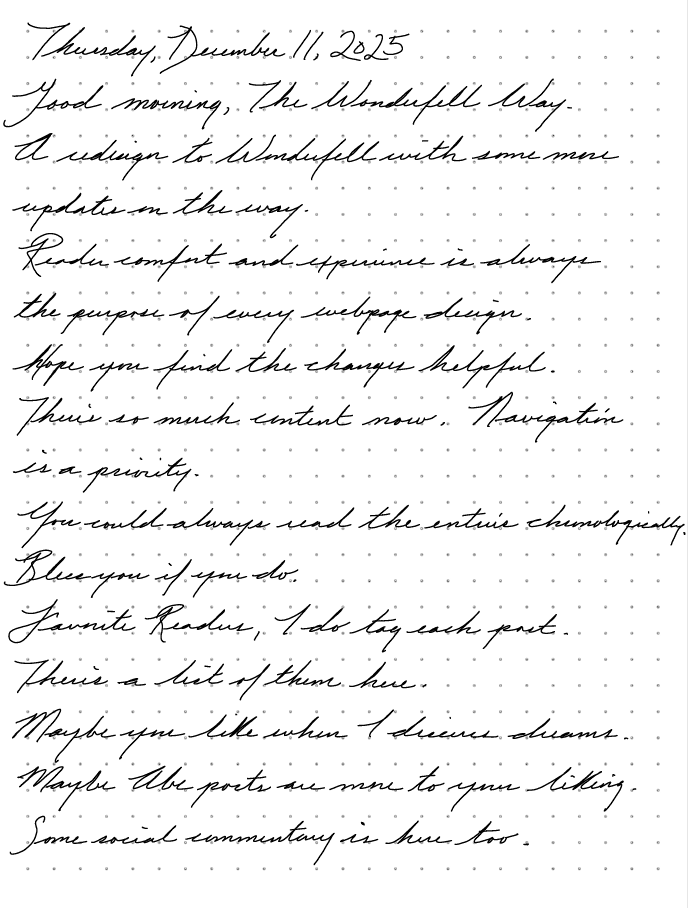 Thursday, December 11, 2025
Good morning, The Wonderfell Way.
A redesign to Wonderfell with some more
updates on the way.
Reader comfort and experience is always
the purpose of every webpage design.
Hope you find the changes helpful.
There's so much content now. Navigation
is a priority.
You could always read the entries chronologically.
Bless you if you do.
Favorite Readers, I do tag each post.
There's a list of them here.
Maybe you like when I discuss dreams.
Maybe Abe posts are more to your liking.
Some social commentary is here too.